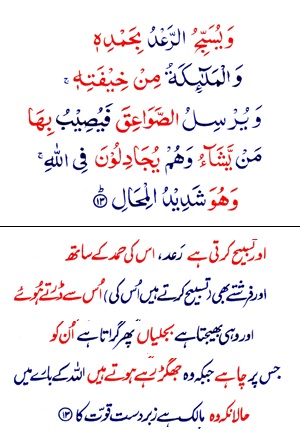 وَيُسَبِّحُ الرَّعْدُ بِحَمْدِهٖ
وَالْمَلٰٓئِكَةُ مِنْ خِيْفَتِهٖ ۚ
وَيُرْسِلُ الصَّوَاعِقَ فَيُصِيْبُ بِهَا
مَنْ يَّشَآءُ وَهُمْ يُجَادِلُوْنَ فِى اللّٰهِ ۚ
وَهُوَ شَدِيْدُ الْمِحَالِ ﴿۱۳﴾
اور تسبیح کرتی ہے رَعد، اس کی حمد کے ساتھ
اور فرشتے بھی (تسبیح کرتے ہیں اُس کی) اُس سے ڈرتے ہوئے
اور وہی بھیجتا ہے بجلیاں پھر گراتا ہے اُن کو
جس پر چاہے جبکہ وہ جھگڑ رہے ہوتے ہیں اللہ کے بارے میں
حالانکہ وہ مالک ہے زبردست قوّت کا ﴿۱۳﴾